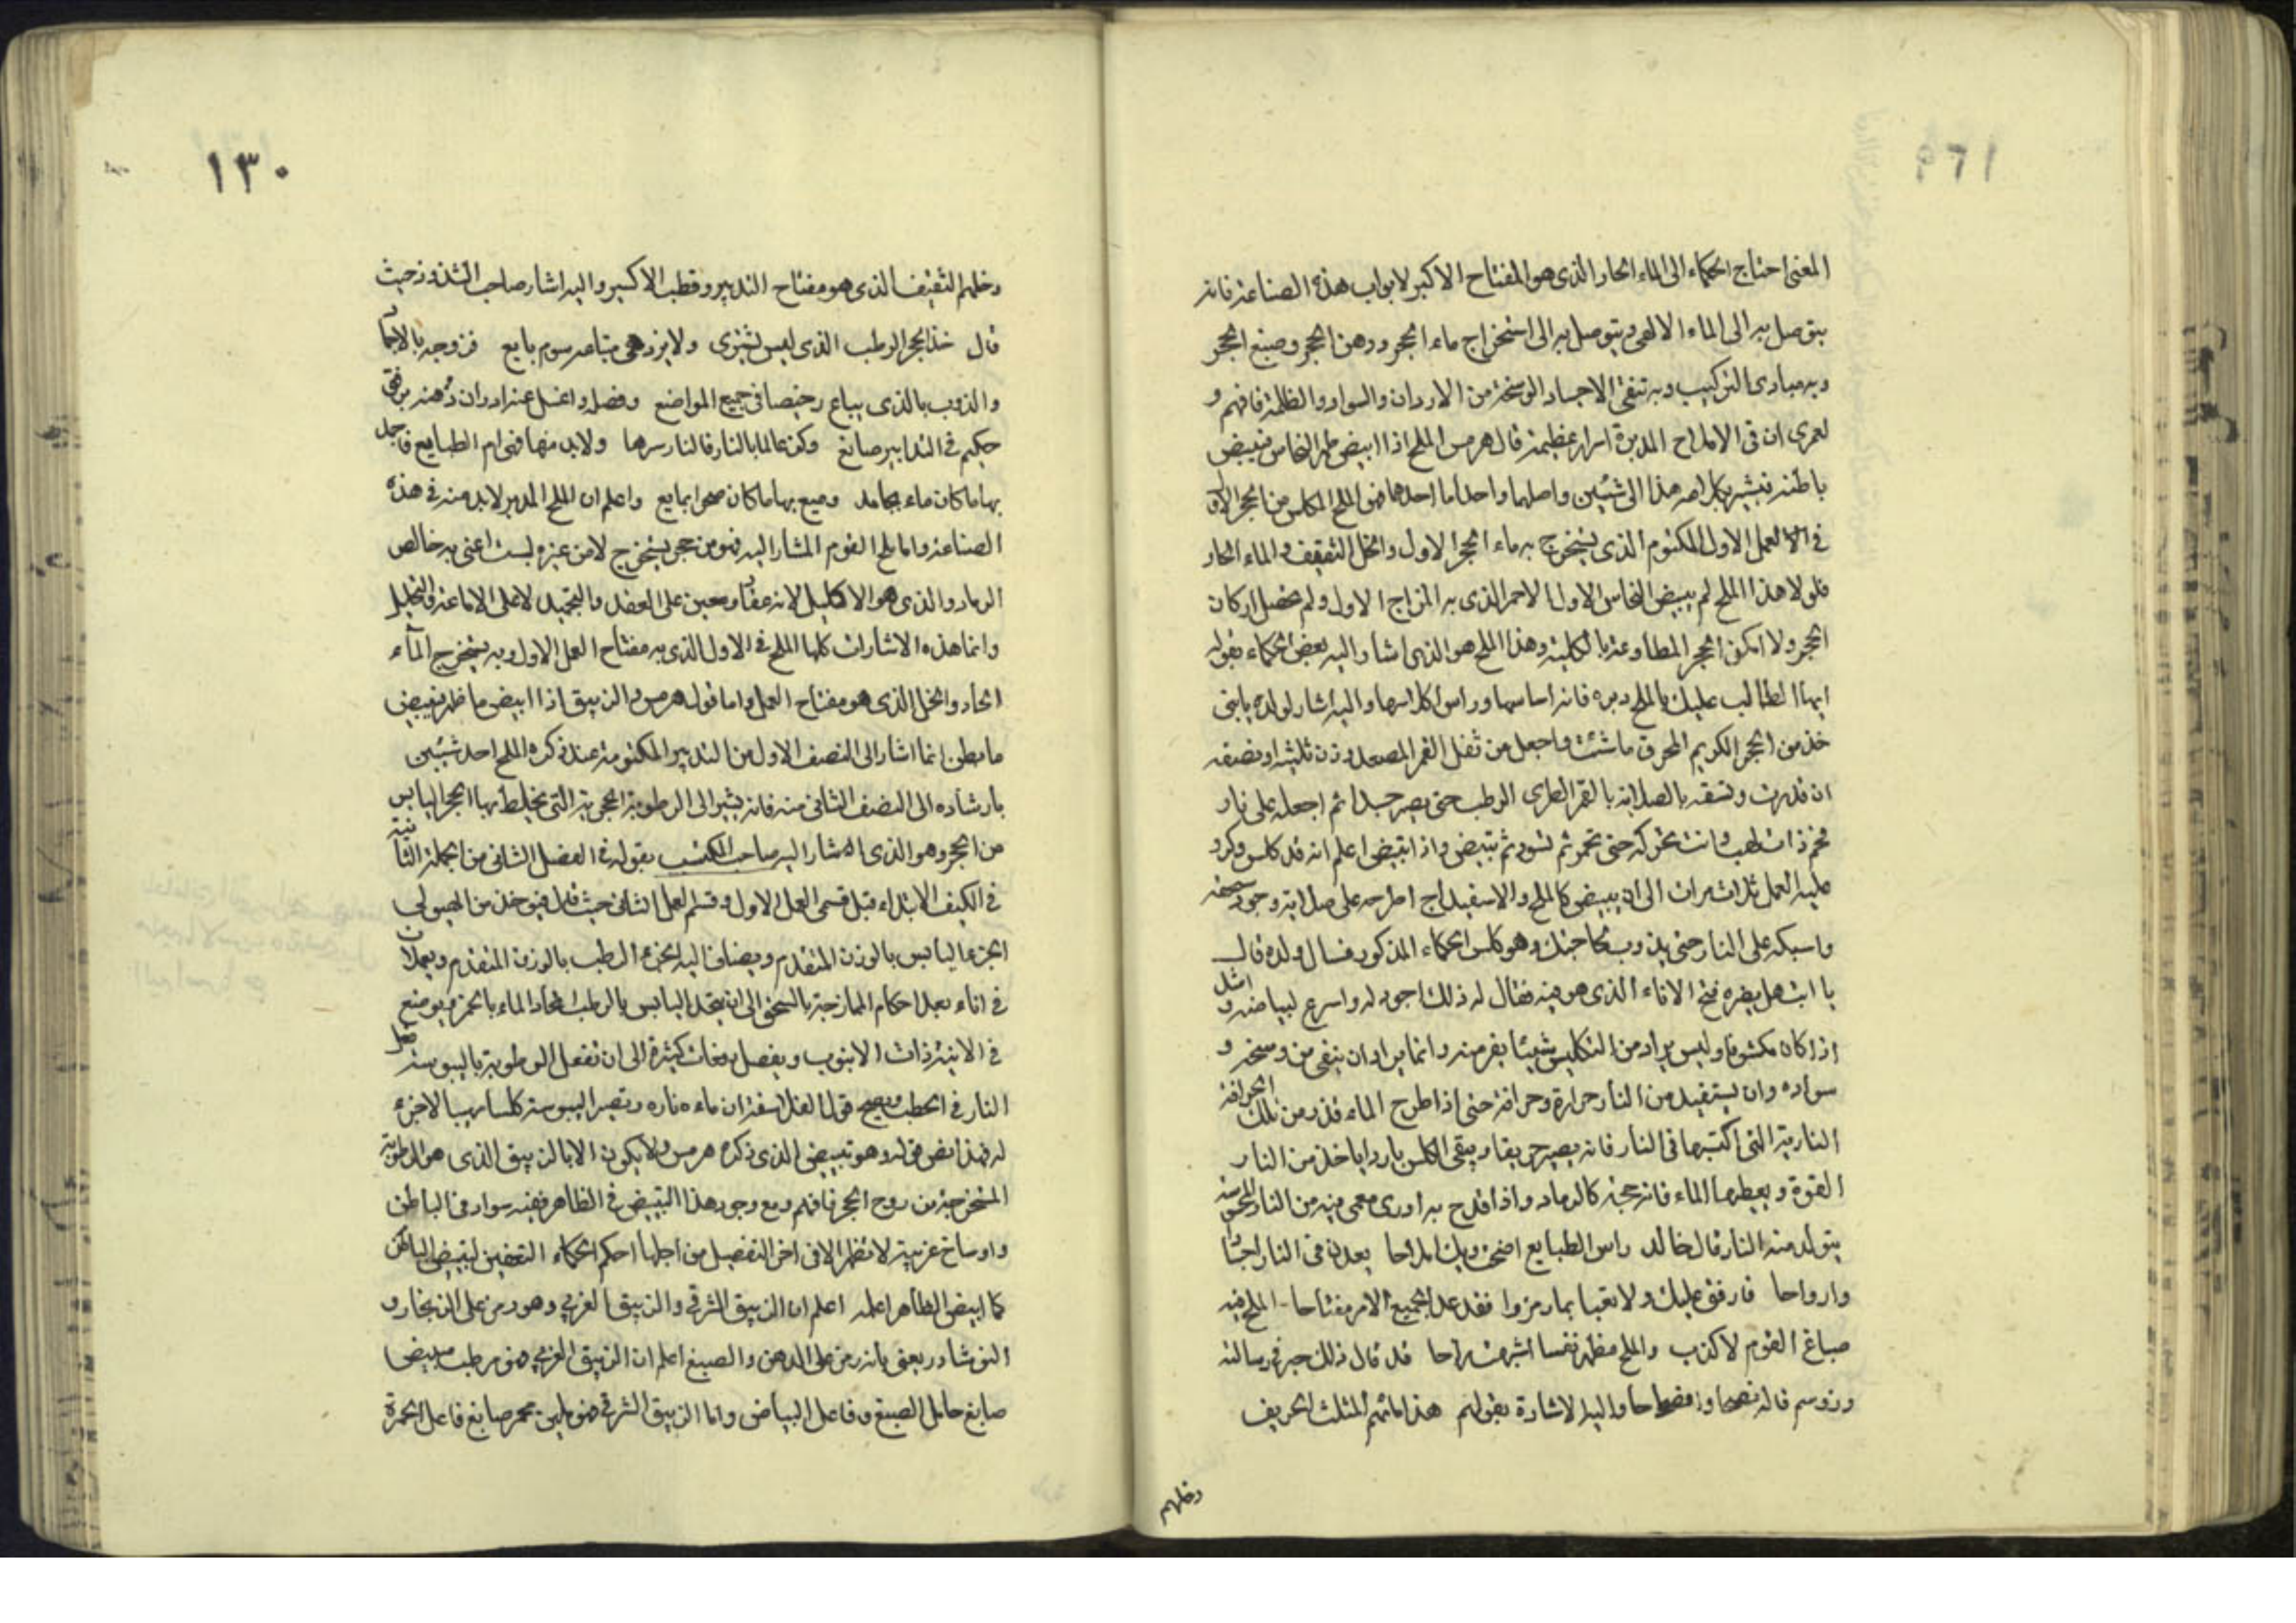 المعنى احتاج الحكماء الى الماء الحار الذى هو المفتاح الاكبر لابواب هذه الصناعة فانه
يتوصل به الى الماء الالهى ويتوصل به الى استخراج ماء الحجر ودهن الحجر وصبغ الحجر
وبه مبادى التركيب وبه تنقى الاجساد الوسخة من الادران والسواد والظلمة فافهم و
لعمرى ان فى الاملاح المدبرة اسرار عظيمة قال هرمس الملح اذا ابيض ظهر النحاس فتبيض
باطنه فيشير بكلامه هذا الى شيئين واصلهما واحد اما احدهما فهو الملح المكلس من الحجر الاول
فى العمل الاول المكتوم الذى يستخرج به ماء الحجر الاول والخل الثقيف والماء الحار
فلولا هذا الملح لم يبيض النحاس الاول الاحمر الذى به المزاج الاول ولم تحصل اركان
الحجر ولا امكن الحجر المطاوعة بالكلية وهذا الملح هو الذى اشار اليه بعض الحكماء بقوله
ايها الطالب عليك بالملح دبره فانه اساسها وراس اكسيرها واليه اشار لولده يابنى
خذ من الحجر الكريم المحرق ماشئت واجعل من ثفل القمر المصعد وزن ثلثيه او نصفه
ان قدرت وتسقه بالصلاية بالقمر الطرى الرطب حتى يصير جسدا ثم اجعله على نار
فحم ذات لهب وانت تحركه حتى تحمر ثم تسود ثم تبيض واذا ابيض اعلم انه قد كلس وكرر
عليه العمل ثلاث مرات الى ان يبيض كالملح والاسفيداج اطرحه على صلاية وجود سحقه
واسبكه على النار حتى يذوب حاجتك وهو كلس الحكماء المذكور فسال ولده قال
يا ابت هل يضره فتح الاناء الذى هو فيه فقال له ذلك اجود له واسرع لبياضه و
اذا كان مكشوفا وليس يراد من التكليس شيئا يفر منه وانما يراد ان ينقى من وسخه و
سواده وان يستفيد من النار حرارة وحرافة حتى اذا طرح الماء قذر من تلك الحرافة
النارية التى اكتسبها فى النار فانه يصير حريقا ويبقى الكلس باردا ياخذ من النار
القوة ويعطيها الماء فانه حجر كالرماد واذا اقدح به اورى معمى فيه من النار
يتولد منه النار قال خالد راس الطبايع اضحت املاحا يعدن فى النار اجسادا
وارواحا فارفق عليك ولا تعبا بما رمزوا فقد غدا لجميع الامر مفتاحا الملح فيه
صباغ القوم لاكذب والملح مظهر نفسا اشرقت راحا قد قال ذلك جبر فى رسالته
وزوسم قاله نصحا وافضاحا واليه الاشارة بقولهم هذا ماءهم المثلث الحريف
وخلهم
١٣٠
وخلهم الثقيف الذى هو مفتاح التدبير وقطب الاكسير واليه اشار صاحب الشذور حيث
قال خذ الحجر الرطب الذى ليس يشترى ولا يزدهى مبتاعه سوم بايع فزوجه بالاجماد
والذوب بالذى يباع رخيصا فى جميع المواضع وفصله واغسل عنه ادران دهنه برفق
حكيم فى التدابير صانع وكن عالما بالنار فالنار سرها ولا بد منها فهى ام الطبايع فاجمد
بها ماكان ماء بجامد وميع بها ماكان صخرا بمايع واعلم ان الملح المدبر لابد منه فى هذه
الصناعة واما ملح القوم المشار اليه فهو من حجر يستخرج لا من غيره لست اعنى به خالص
الرماد والذى هو الاكليل لانه عقار معين على العقد والتجميد لا على الاماعة والتحليل
وانما هذه الاشارات كلها الملح فى الاول الذى به مفتاح العمل الاول وبه يستخرج الماء
الحاد والخل الذى هو مفتاح العمل واما قول هرمس والزيبق اذا ابيض ماظهر فيبيض
مابطن انما اشار الى النصف الاول من التدبير المكتومة عند ذكره الملح احد شيئين
بارشاده الى النصف الثانى منه فانه يشير الى الرطوبة الحجرية التى يختلط بها الحجر اليابس
من الحجر وهو الذى اشار اليه صاحب المكتسب بقوله فى الفصل الثانى من الجملة الثانية
فى الكيف الابتداء قبل قسمى العمل الاول وقسم العمل الثانى حيث قال فيؤخذ من الهيولى
الجزء اليابس بالوزن المتقدم ويضاف اليه الجزء الرطب بالوزن المتقدم ويجعلان
فى اناء بعد احكام الممازجة بالسحق الى ان يتحد اليابس بالرطب اتحاد الماء بالخمر ويوضع
فى الانية ذات الانبوب ويفصل دفعات كثيرة الى ان تفعل الرطوبة باليبوسة فعل
النار فى الحطب ويصح قول الفلاسفة ان ماءه ناره وتصير اليبوسة كلسا هبيا لاجزء
له فهذا نص قوله وهو تبييض الذى ذكره هرمس ولا يكون الا بالزيبق الذى هو الرطوبة
المستخرجة من روح الحجر فافهم ومع وجود هذا التبييض فى الظاهر ففيه سواد فى الباطن
واوساخ غريبة لا تظهر الا فى اخر التفصيل من اجلها احكم الحكماء التعفين لتبيض الباطن
كما ابيض الظاهر اعلم اعلم ان الزيبق الشرقى والزيبق الغربى وهو رمز على الزنجار و
النوشادر يعنى بانه رمز على الدهن والصبغ اعلم ان الزيبق الغربى هو مرطب مبيض
صابغ حامل الصبغ وفاعل البياض واما الزيبق الشرقى فهو ملين محمر صابغ فاعل الحمرة